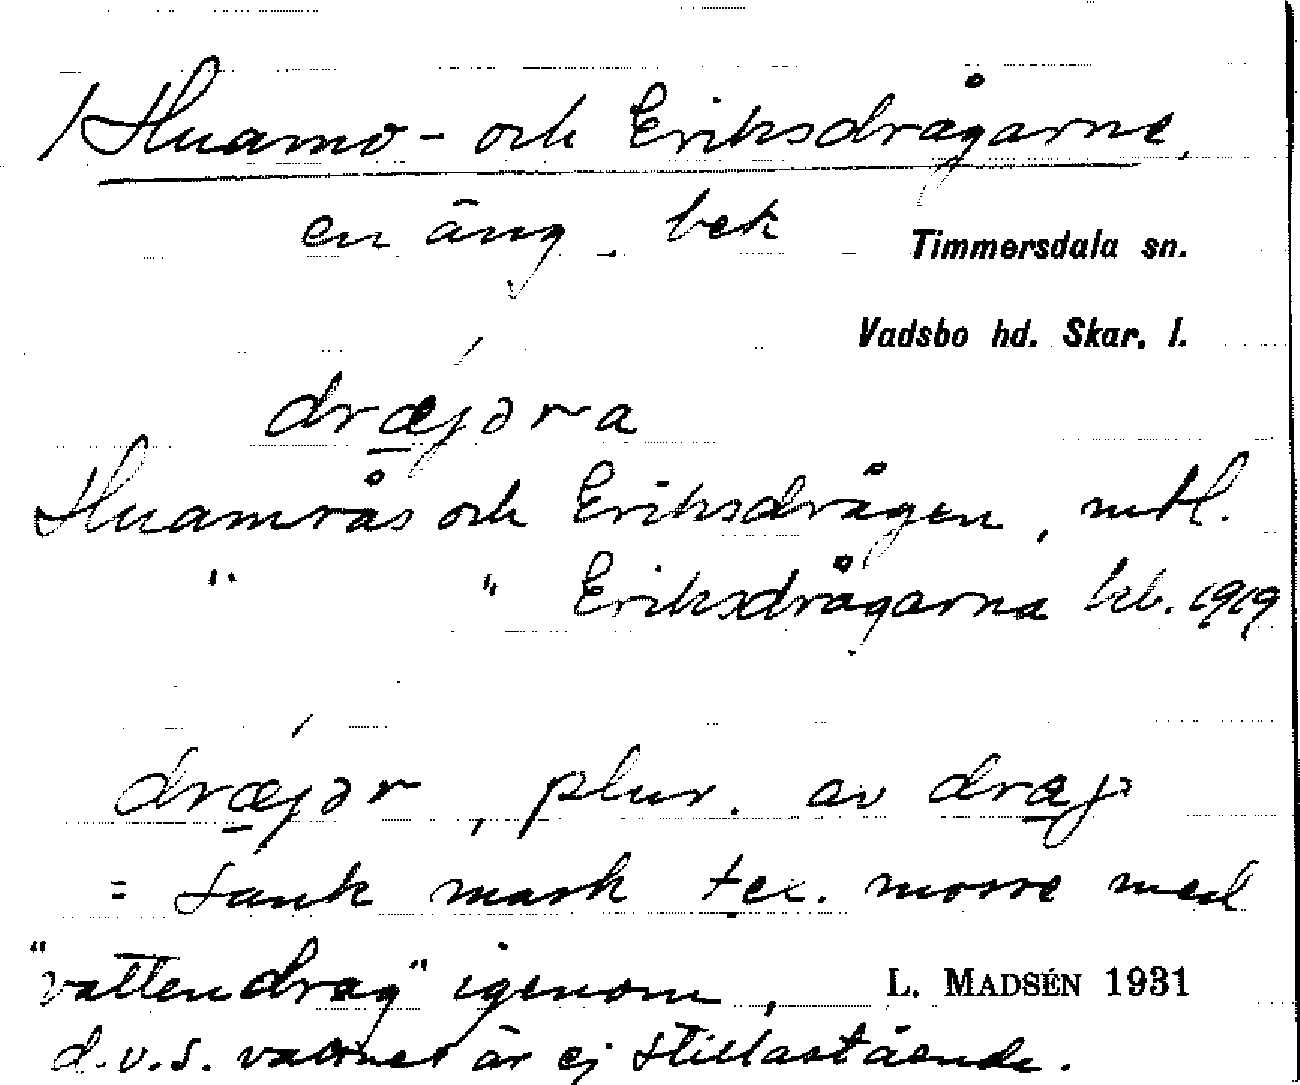 / Huamo- och Eriksdrågarne,
en äng. bek
Timmersdala sn.
Vadsbo hd. Skar. l.
dræjəra
Huamrås och Eriksdrågen, mtl.
" " Eriksdrågarna kb. 1919
dræjər, plur. av draj
= sank mark tex. mosse med
"vattendrag" igenom,
L. MADSÉN 1931
d.v.s. vattnet är ej stillastående.